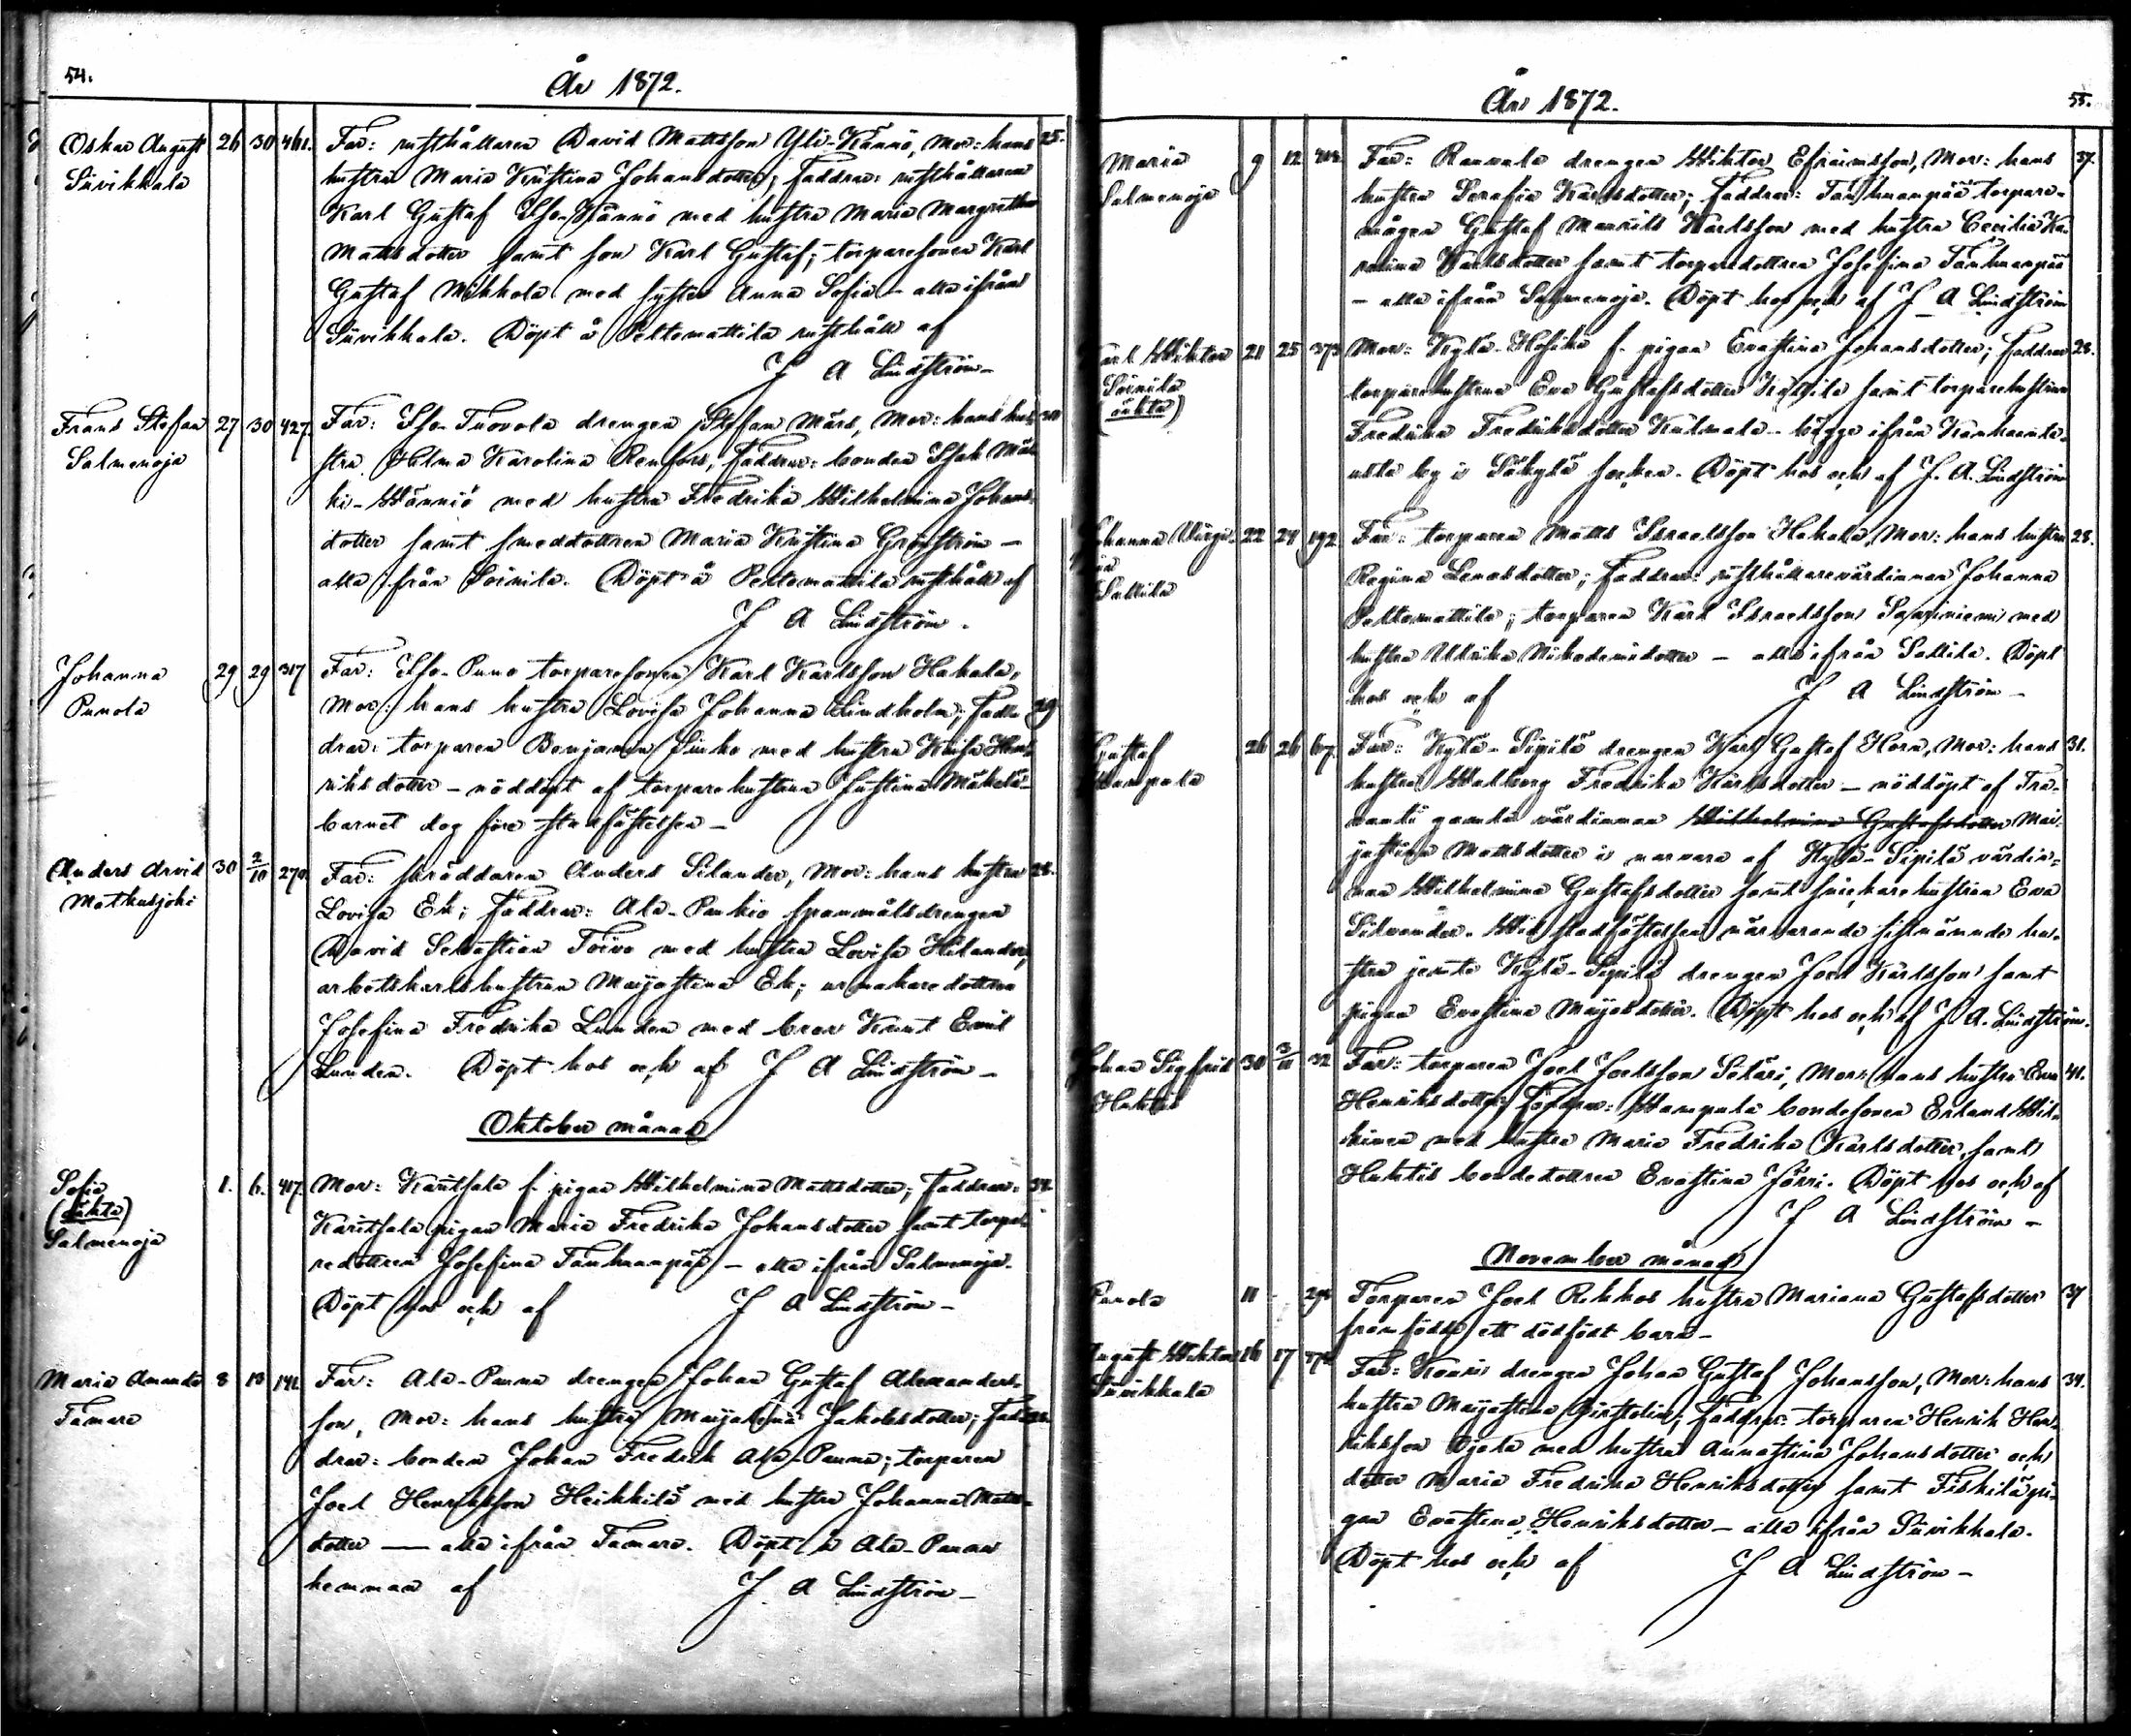 54.
År 1872.
Oskar August 26 30 461. Far: rusthållaren David Mattsson Yli-Kännö, Mor: hans 25.
Suvikkala hustru Maria Kristina Johansdotter; Faddrar: rusthållaren
Karl Gustaf Iso-Kännö med hustru Maria Margretha
Mattsdotter samt son Karl Gustaf; torparesonen Karl
Gustaf Mikkola med syster Anna Sofia – alla ifrån
Suvikkala. Döpt å Peltomattila rusthåll af
J A Lindström –
Frans Stefan 27 30 427. Far: Iso-Tuovola drengen Stefan Mårs, Mor: hans hu-
Salmenoja stru Helma Karolina Renfors; Faddrar: bonden Isak
med hustru Fredrika Wilhelmina Johans-
dotter samt smeddottren Maria Kristina Grönström –
alla ifrån Soinila. Döpt å Peltomattila rusthåll af
J A Lindström.
Johanna 29 29 317 Far: Iso-Puno torparesonen Karl Karlsson Hakala,
Punola Mor: hans hustru Lovisa Johanna Lindholm; Fad- 29
drar: torparen Benjamin med hustru Kaisa Hen-
riksdotter – nöddöpt af torparehustrun Justina Mäkelä –
barnet dog före stadfästelsen –
Anders Arvid 30 2/10 270. Far: skräddaren Anders Silander, Mor: hans hustru 28.
Matkusjoki Lovisa Ek; Faddrar: Ala-Pankio spannmålsdrengen
David Sebastian Toivo med hustru Lovisa Hilander,
arbetskarlshustrun Majastina Ek; urmakaredottren
Josefina Fredrika Lunden med bror Knut Emil
Lunden. Döpt hos och af J A Lindström –
Oktober månad
Sofia 1. 6. 417. Mor: Karitsala f. pigan Wilhelmina Mattsdotter; Faddrar: 34.
(oäkta) Karitsala pigan Maria Fredrika Johansdotter samt torpa-
Salmenoja redottren Josefina Tanhuanpää – alla ifrån Salmenoja.
Döpt hos och af J A Lindström –
Maria Amanda 8 13 141. Far: Ala-Panna drengen Johan Gustaf Alexanders-
Tamare son, Mor: hans hustru Majalena Jakobsdotter; Fad-
drar: bonden Johan Fredrik Ala-Panna; torparen
Joel Henriksson Heikkilä med hustru Johanna Matts-
dotter — alla ifrån Tamare. Döpt å Ala-Panna
hemman af J A Lindström –
År 1872.
55.
Maria 9 12 Far: Rauvala drengen Wiktor Efraimsson, Mor: hans 37.
Salmenoja hustru Serafia Karlsdotter; Faddrar: Tanhuanpää torpare-
mågen Gustaf Karlsson med hustru Cecilia Ka-
rolina Karlsdotter samt torparedottren Josefina Tanhuanpää
– alla ifrån Salmenoja. Döpt hos och af J A Lindström
Karl Wiktor 21 25 373 Mor: Kylä-Hosika f. pigan Evastina Johansdotter; Faddrar 28.
Soinila torparehustrun Eva Gustafsdotter Kallila samt torparehustrun
(oäkta) Fredrika Fredriksdotter Kulmala – bägge ifrån
by i Säkylä socken. Döpt hos och af J. A. Lindström
Johanna Virgi- 22 24 192. Far: torparen Matts Israelsson Hakala, Mor: hans hustru 28.
nia Regina Lenasdotter; Faddrar: rusthållarevärdinnan Johanna
Sallila Peltomattila; torparen Karl Israelsson Saariniemi med
hustru Ulrika Nikodemidotter – alla ifrån Sallila. Döpt
hos och af J A Lindström –
Gustaf 26 26 67. Far: Kylä-Sipilä drengen Karl Gustaf Horn, Mor: hans 31.
Wampula hustru Walborg Fredrika Karlsdotter – nöddöpt af
gamla värdinnan Wilhelmina Gustafsdotter Mai-
jastina Mattsdotter i närvaro af Kylä-Sipilä värdin-
nan Wilhelmina Gustafsdotter samt snickarehustrun Eva
Silvander. Wid stadfästelsen närvarande sistnämnda hu-
stru jemte Kylä-Sipilä drengen Joel Karlsson samt
pigan Evastina Majasdotter. Döpt hos och af J. A. Lindström.
Johan Sigfrid 30 3/11 32 Far: torparen Joel Joelsson Sitäri, Mor: hans hustru Eva 41.
Huhtis Henriksdotter; Faddrar: Wampula bondesonen Erland
med hustru Maria Fredrika Karlsdotter, samt
Huhtis bondedottren Evastina Jässi. Döpt hos och af
J A Lindström –
November månad
Punola 11 – Torparen Joel Rekkos hustru Mariana Gustafsdotter 37
framfödde ett dödfödt barn –
August Wiktor 16 17 Far: Kännö drengen Johan Gustaf Johansson, Mor: hans 34.
Suvikkala hustru Majastina; Faddrar: torparen Henrik Hen-
riksson Ojala med hustru Annastina Johansdotter och
dotter Maria Fredrika Henriksdotter samt pi-
gan Evastina Henriksdotter – alla ifrån Suvikkala.
Döpt hos och af J A Lindström –